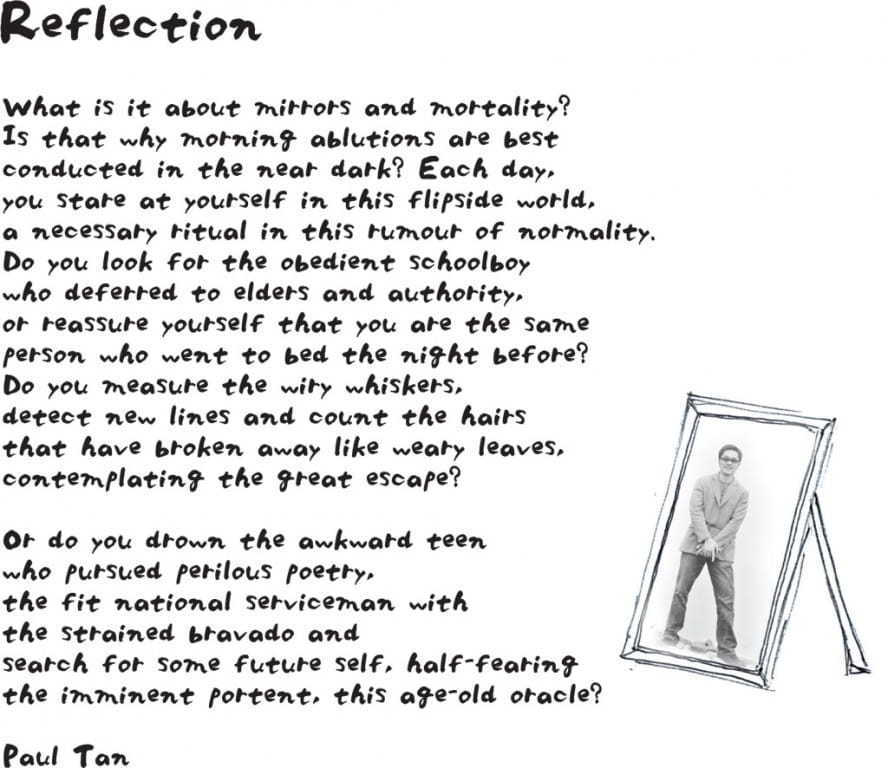 Reflection
What is it about mirrors and mortality?
Is that why morning ablutions are best
conducted in the near dark? Each day,
you stare at yourself in this flipside world,
a necessary ritual in this rumour of normality.
Do you look for the obedient schoolboy
who deferred to elders and authority,
or reassure yourself that you are the same
person who went to bed the night before?
Do you measure the wiry whiskers,
detect new lines and count the hairs
that have broken away like weary leaves,
contemplating the great escape?
Or do you drown the awkward teen
who pursued perilous poetry,
the fit national serviceman with
the strained bravado and
search for some future self, half-fearing
the imminent portent, this age-old oracle?
Paul Tan